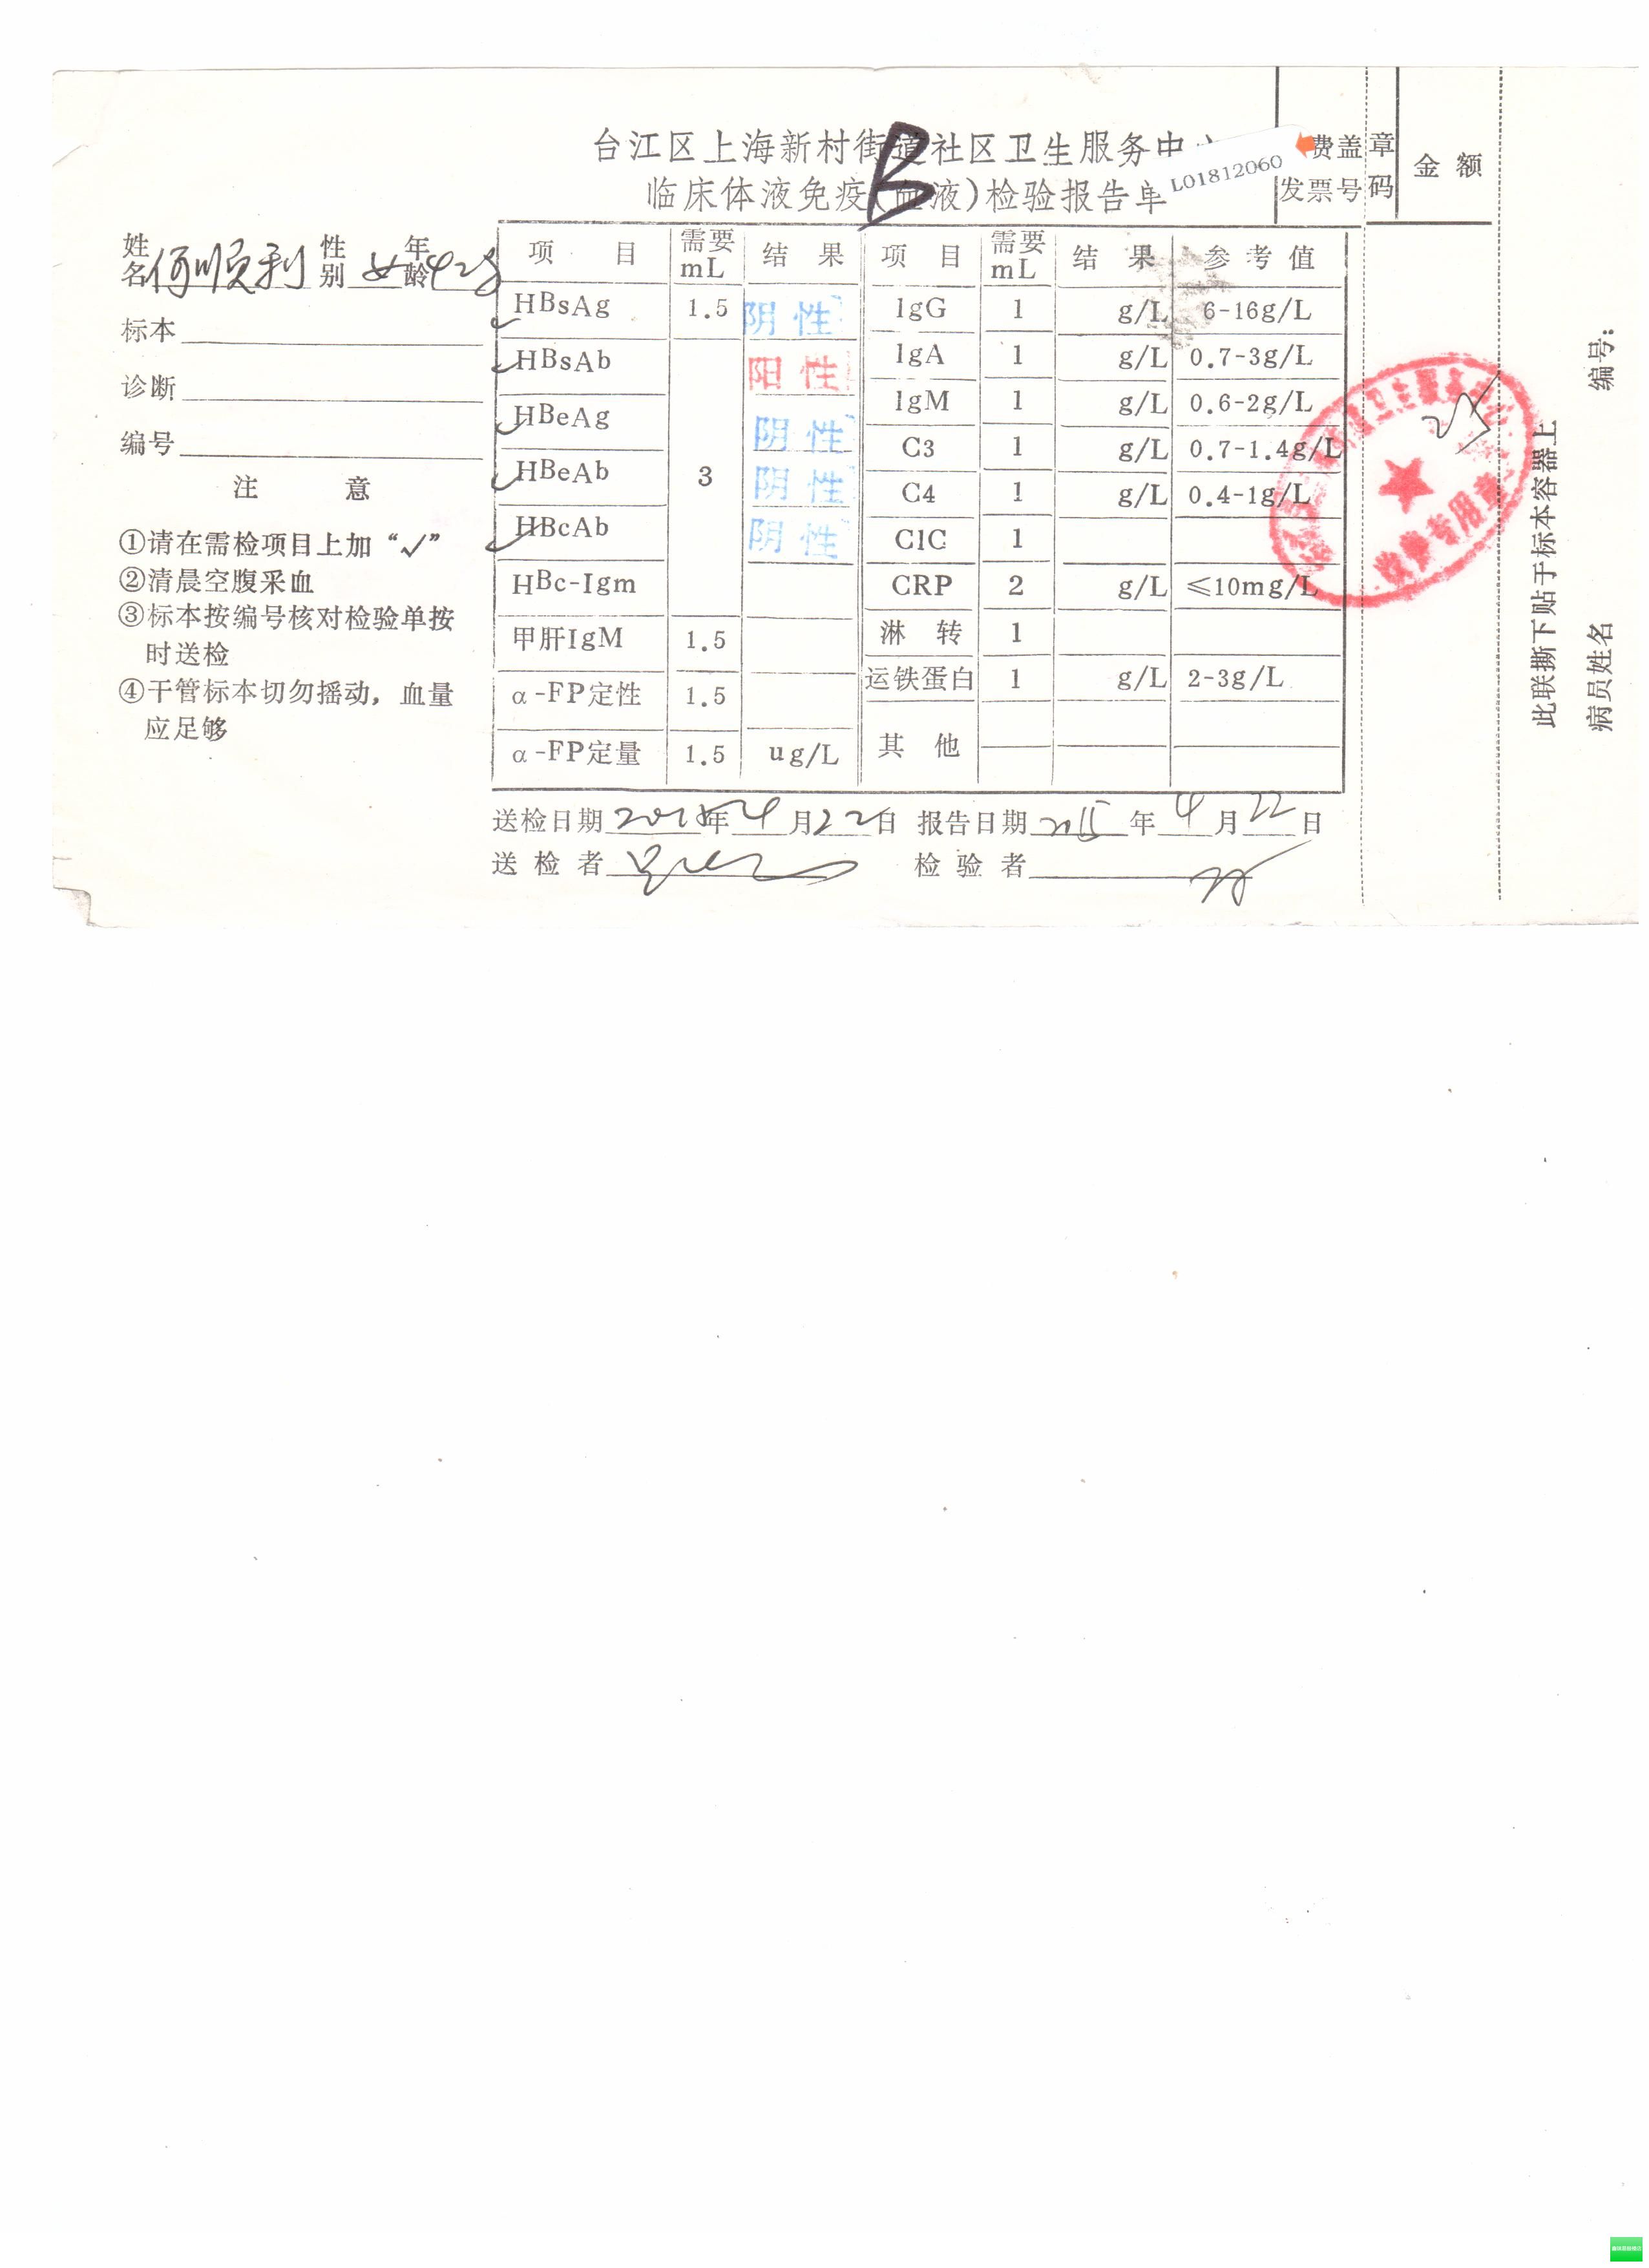 台江区上海新村街道社区卫生服务中心
临床体液免疫(血液)检验报告单
B
L01812060
费盖章
发票号码
金额
姓名 何顺利 性别 女 年龄 42岁
标本
诊断
编号
注 意
①请在需检项目上加“√”
②清晨空腹采血
③标本按编号核对检验单按
时送检
④干管标本切勿摇动，血量
应足够
项 目 需要mL 结 果 项 目 需要mL 结 果 参考值
HBsAg 1.5 阴性 IgG 1 g/L 6-16g/L
HBsAb 3 阳性 IgA 1 g/L 0.7-3g/L
HBeAg 阴性 IgM 1 g/L 0.6-2g/L
HBeAb 阴性 C3 1 g/L 0.7-1.4g/L
HBcAb 阴性 C4 1 g/L 0.4-1g/L
HBc-Igm CIC 1
甲肝IgM 1.5 CRP 2 g/L ≤10mg/L
α-FP定性 1.5 淋 转 1
α-FP定量 1.5 ug/L 运铁蛋白 1 g/L 2-3g/L
其 他
送检日期 2015年4月22日 报告日期 2015年4月22日
送检者 检验者
收费专用章
此联撕下贴于标本容器上
编号：
病员姓名